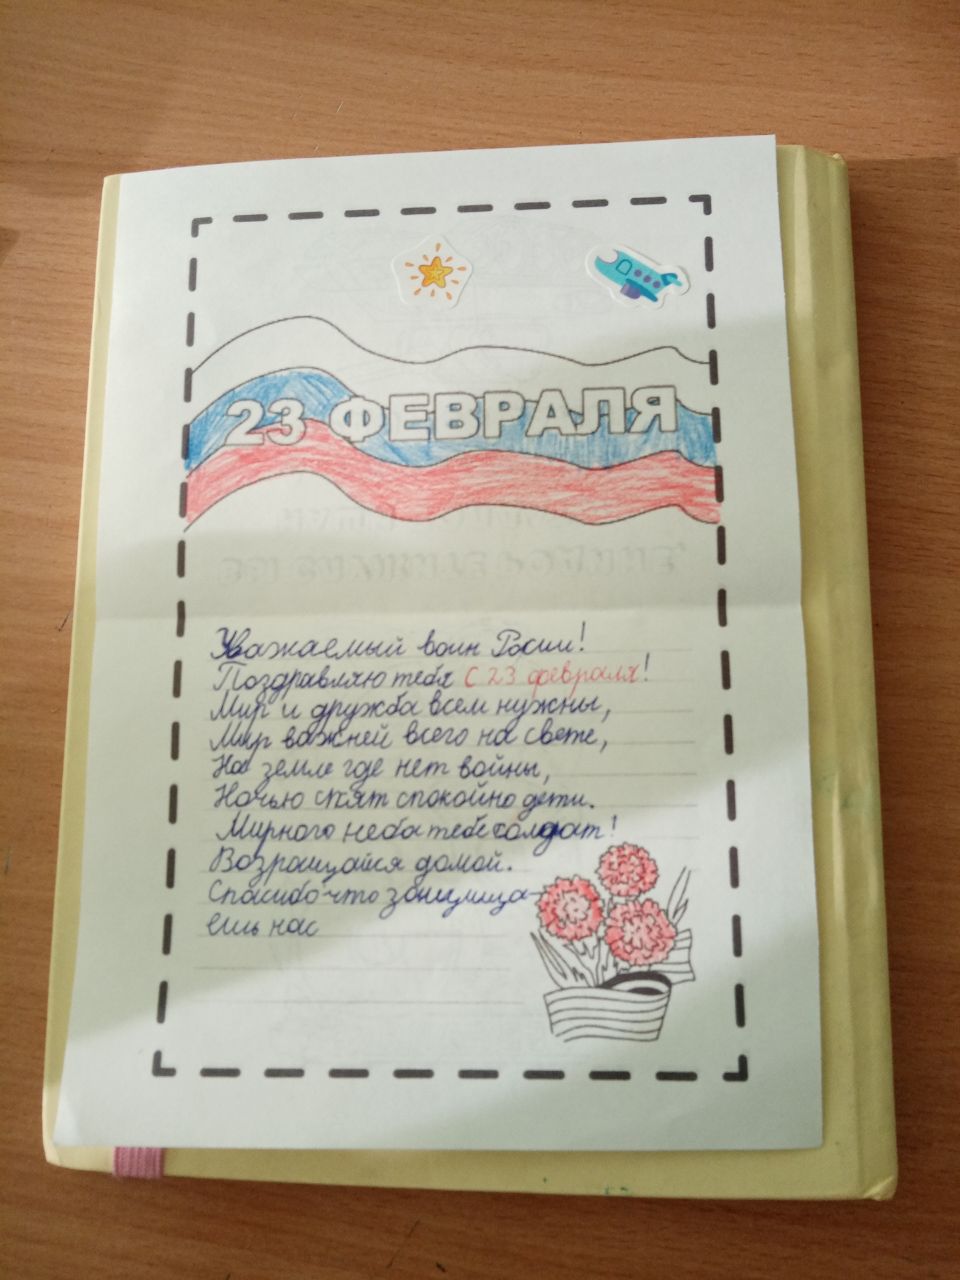 23 ФЕВРАЛЯ
Уважаемый воин Росии!
Поздравляю тебя с 23 февраля!
Мир и дружба всем нужны,
Мир важней всего на свете,
На земле где нет войны,
Ночью спят спокойно дети.
Мирного неба тебе солдат!
Возращайся домой.
Спасибо что защища-
ешь нас